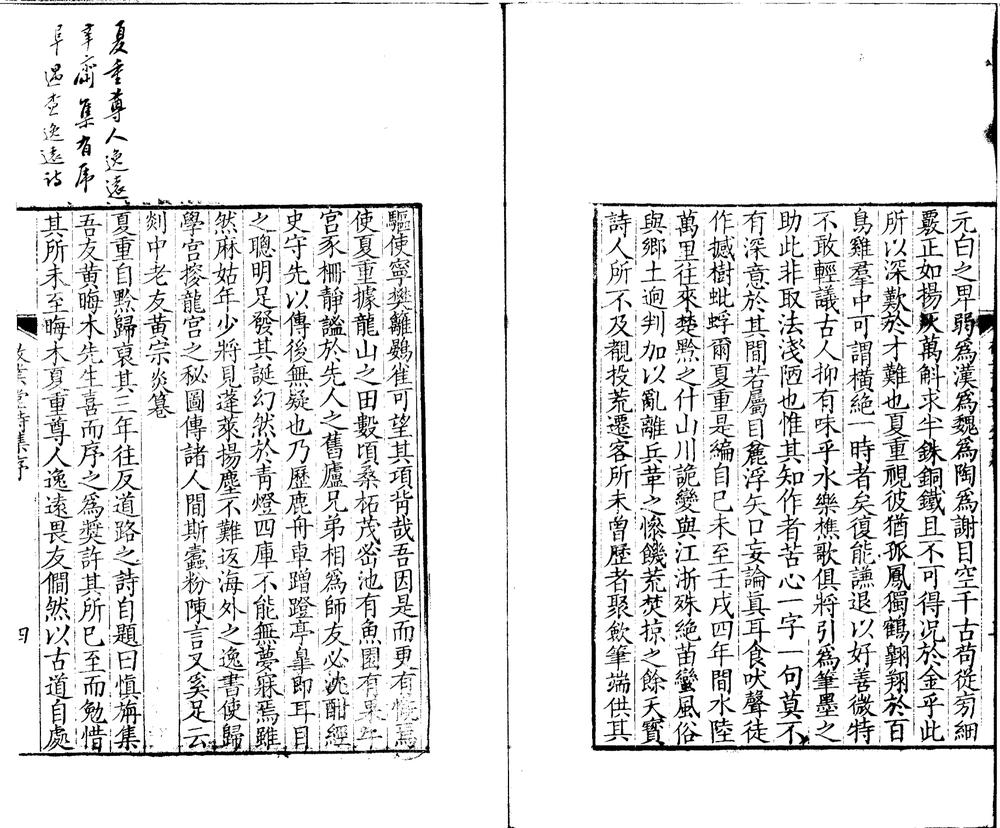 元白之卑弱爲漢爲魏爲陶爲謝目空千古苟從刻細
覈正如揚灰萬斛求半銖銅鐵且不可得况於金乎此
所以深歎於才難也夏重視彼猶孤鳳獨鶴翱翔於百
鳥雞羣中可謂橫絶一時者矣復能謙退以好善微特
不敢輕議古人抑有味乎水樂樵歌俱將引爲筆墨之
助此非取法淺陋也惟其知作者苦心一字一句莫不
有深意於其間若屬目麄浮矢口妄論眞耳食吠聲徒
作撼樹蚍蜉爾夏重是編自己未至壬戌四年間水陸
萬里往來楚黔之什山川詭變與江浙殊絶苗蠻風俗
與鄉土迥判加以亂離兵革之慘饑荒焚掠之餘天寳
詩人所不及覩投荒遷客所未曾歷者聚歛筆端供其
驅使寧樊籬鷃雀可望其項背哉吾因是而更有慨焉
使夏重據龍山之田數頃桑柘茂密池有魚園有果牛
宫豕柵靜謐於先人之舊廬兄弟相爲師友必沈酣經
史守先以傳後無疑也乃歷鹿舟車蹭蹬亭臯即耳目
之聰明足發其誕幻然於靑燈四庫不能無夢寐焉雖
然麻姑年少將見蓬萊揚塵不難返海外之逸書使歸
學宫搜龍宫之秘圖傳諸人間斯蠹粉陳言又奚足云
剡中老友黃宗炎篹
夏重自黔歸裒其三年往反道路之詩自題曰愼旃集
吾友黃晦木先生喜而序之爲奬許其所已至而勉惜
其所未至晦木夏重尊人逸遠畏友僩然以古道自處
敬業堂詩集序
四
夏重尊人逸遠
羣齋集有序
早遇查逸遠詩